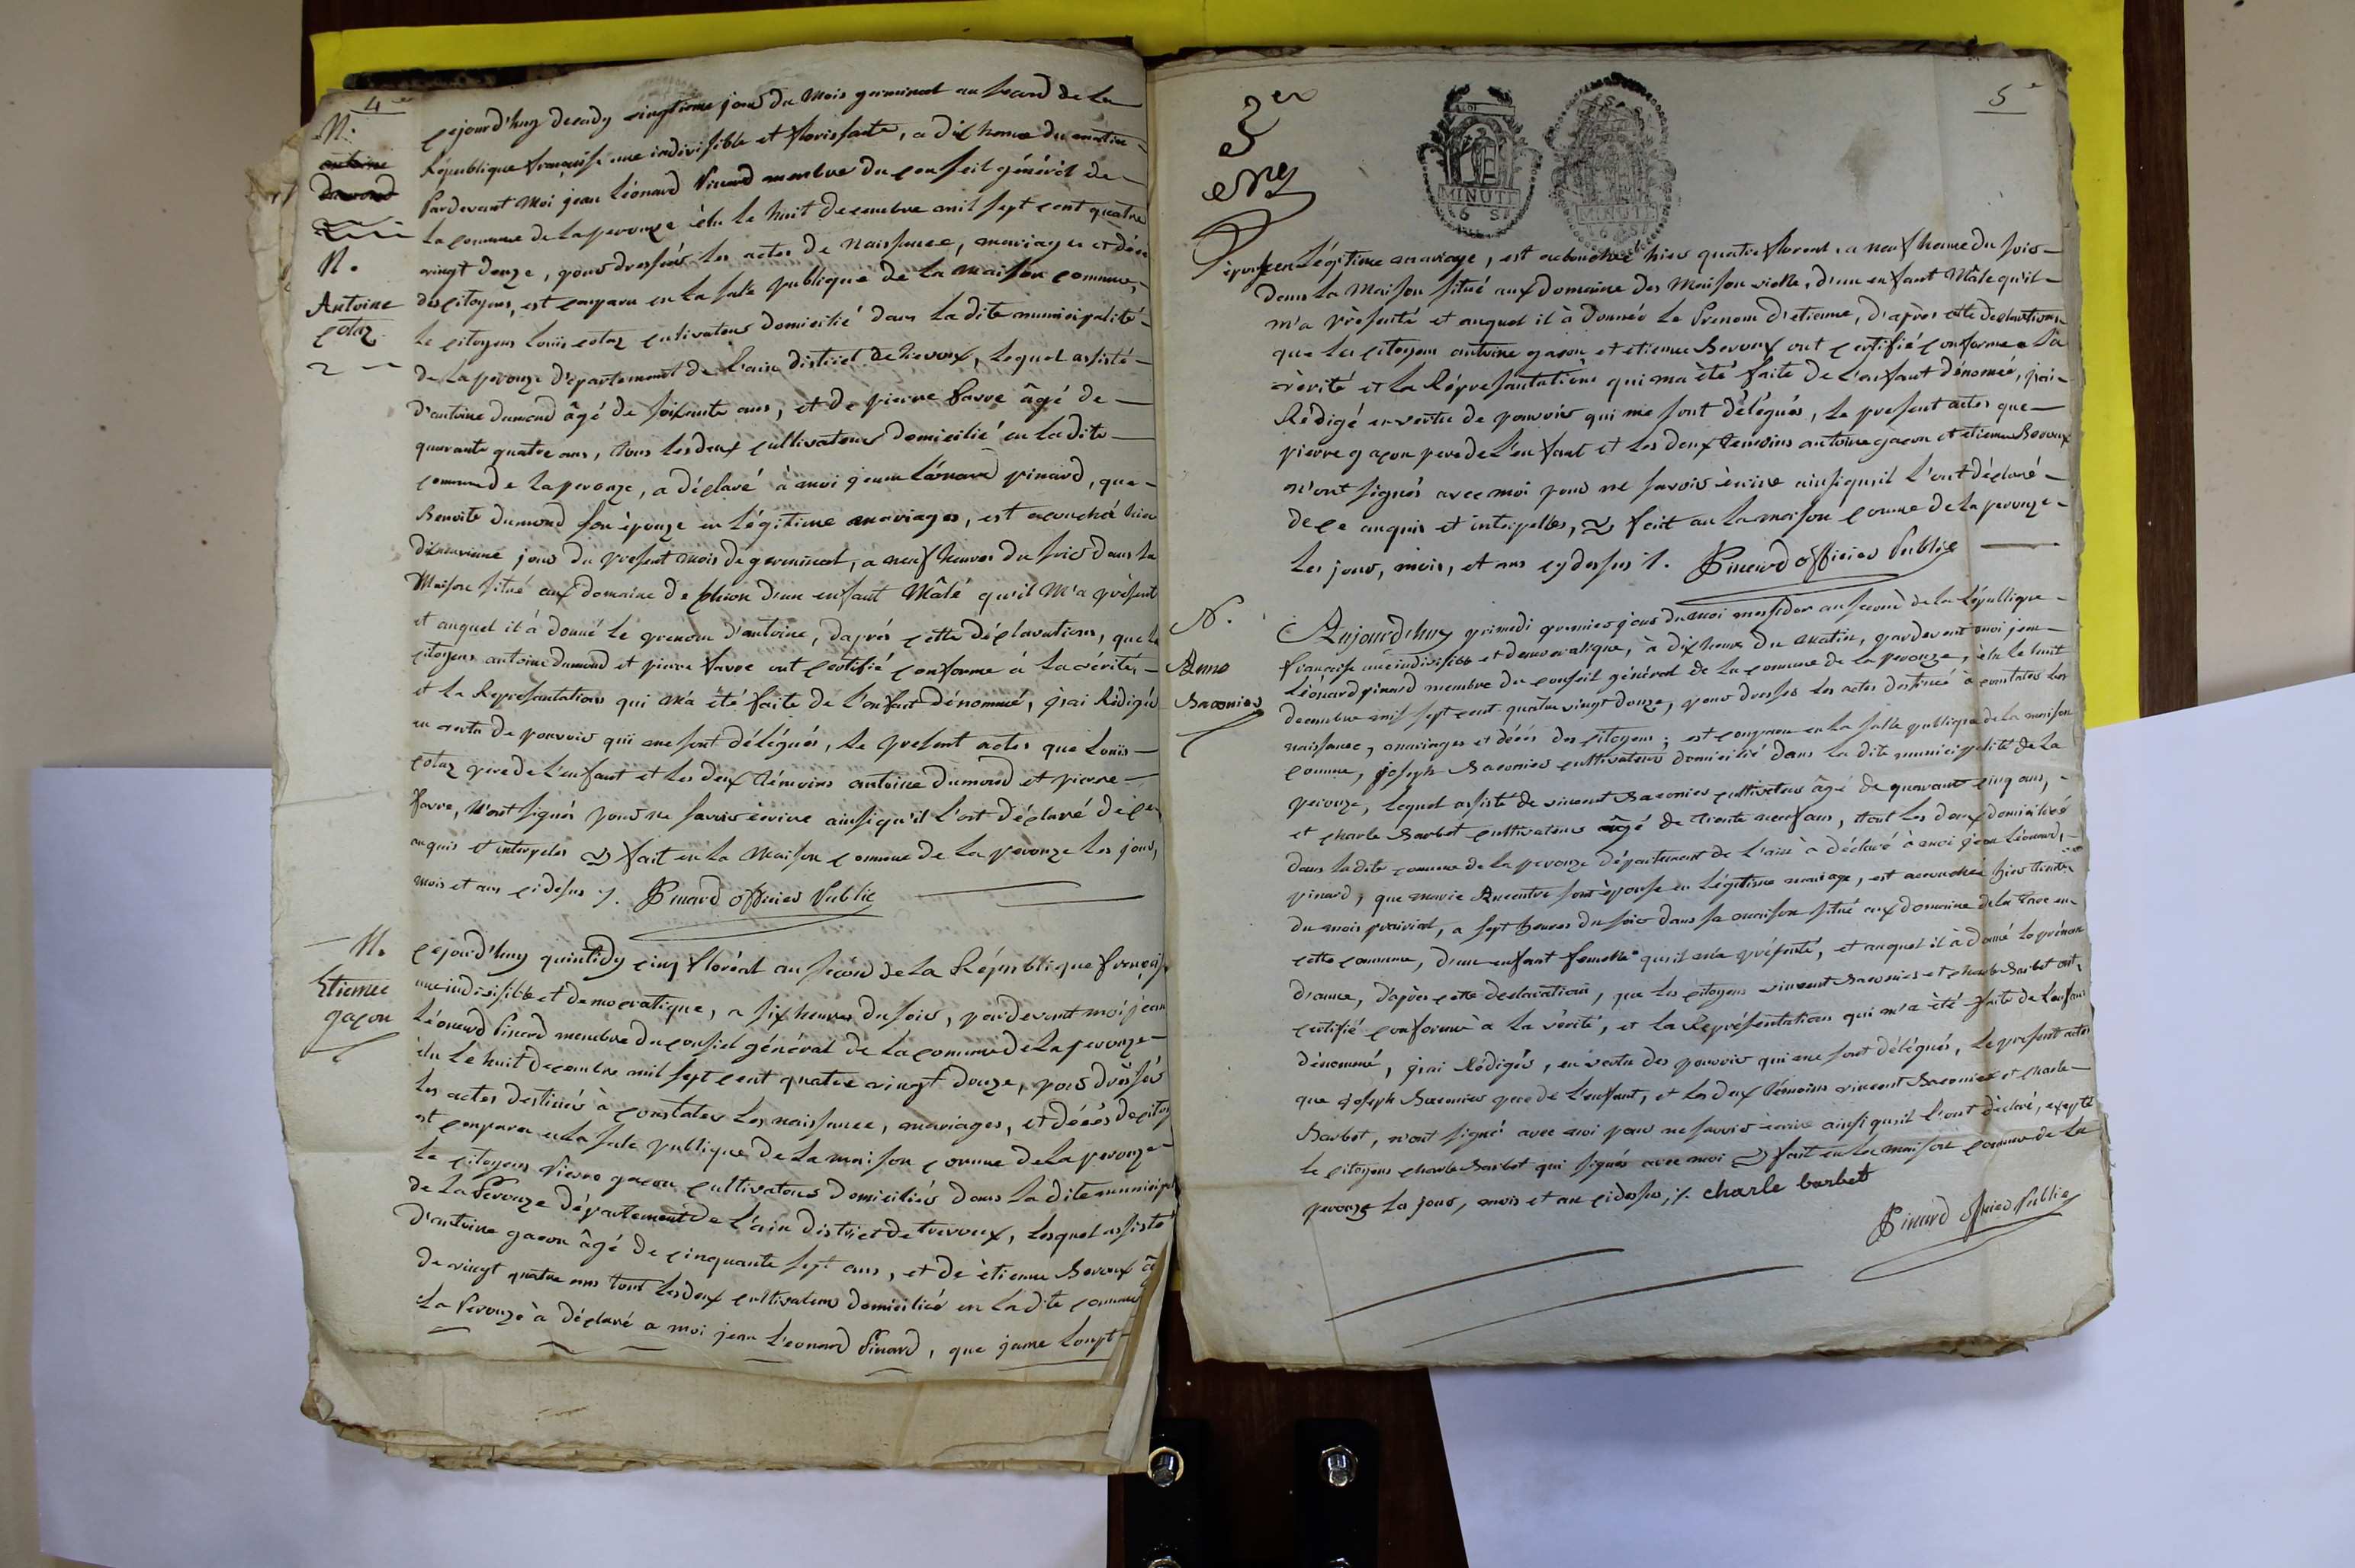 4e
N.
antoine
dumond
N.
Antoine
cotaz
cejourd'huy decady vingtieme jour du Mois germinal an second de la
République française une indivisible et florissante, a dix heures du matin
Pardevant Moi jean Léonard Pinard membre du conseil général de
la commune de laperouze élu le huit decembre mil sept cent quatre
vingt douze, pour dresser les actes de naissance, mariages et décè
des citoyens, est comparu en la sale publique de la maison commune,
le citoyen Louis cotaz cultivateur domicilié dans la dite municipalité
de la perouze département de l'ain district de trevoux, lequel assisté
d'antoine dumond âgé de soixante ans, et de pierre favre âgé de
quarante quatre ans, tous les deux cultivateurs domicilié en la dite
commune de laperouze, a déclaré à moi jean Léonard pinard, que
Benoite dumond son épouze en légitime mariages, est acouchée hier
dixneuvieme jour du present mois de germinal, a neuf heures du soir dans la
Maison situé aux domaine de d'un enfant Mâle qu'il M'a présent
et auquel il a donné le prenom d'antoine, d'aprés cette déclarations, que le
citoyens antoine dumond et pierre favre ont certifié conforme à la vérités
et la Représantations qui m'a été faite de l'enfant dénommé, j'ai Rédigés
en vertu de pouvoir qui me sont délégués, le present actes que Louis
cotaz pere de l'enfant et les deux témoins antoine dumond et pierre
favre, n'ont signés pour ne savoir écrire ainsi qu'il l'ont déclaré de ce
enquis et interpeles fait en la Maison commune de la perouze les jour,
mois et ans cidesus ⁒. Pinard officier Public
N.
Etienne
gaçon
cejourd'huy quintidy cinq floréal an second de la République françois
une indivisible et democratique, a six heures du soir, pardevant moi jean
Léonard Pinard membre du conseil général de la commune de la perouze
élu le huit decembre mil sept cent quatre vingt douze, pour drésser
les actes destinés à constater les naissance, mariages, et décés de citoy
est comparu en la sale publique de la maison comune de la perouze
le citoyen Pierre gacon cultivateur domiciliés dans la dite municipal
de la Perouze département de l'ain district de trevoux, lesquel assisté
d'antoine gacon âgé de cinquante sept ans, et de étienne Beroux âg
de vingt quatre ans tout les deux cultivateurs domicilié en la dite commune
la Perouze à déclaré a moi jean L'eonard Pinard, que jeanne
5e
MINUTE
6 S
MINUTE
épouze en légitime mariage, est acouchée hier quatre floreal a neuf heure du soir
dans la Maison situé aux domaine des Maison vielle, d'un enfant Mâle qu'il
m'a présenté et auquel il à donnée le Prenom d'etienne, d'après cette déclarations
que les citoyen antoine gacon et etienne Beroux ont certifié conforme a la
vérité et la Représantations qui ma été faite de l'enfant dénomée, j'ai
Rédigé en vertu de pouvoir qui me sont délégués, le present actes que
pierre gaçon pere de l'enfant et les deux temoins antoine gacon et etienne Beroux
n'ont signés avec moi pour ne savoir écrire ainsi qu'il l'ont déclaré
de ce anquis et interpelles, fait au la maison comune de la perouze
les jour, mois, et ans cy dessus ⁒. Pinard officier Public
N.
Anne
Baconier
Aujourd'huy primedi premier jour du moi messidor an second de la République
française une indivisible et democratique, à dix heure du matin, pardevant moi jean
Léonard pinard membre du conseil général de la commune de la perouze, élu le huit
decembre mil sept cent quatre vingt douze, pour dresser les actes destiné à constater les
naissance, mariages et décés des citoyens; est comparu en la salle publique de la maison
comune, joseph Baconier cultivateur domicilié dans la dite municipalité de la
perouze, lequel assisté de vincent Baconier cultivateur âgé de quarante cinq ans,
et charle Barbet cultivateur âgé de trente neuf ans, tout les deux domiciliés
dans ladite commune de la perouze département de l'ain à déclaré à moi jean Léonard,
pinard, que marie son épouse en légitime mariage, est acouchée hier trente
du mois prairial, a sept heures du soir dans sa maison situé aux domaine de la en
cette commune, d'un enfant femelle qu'il m'a présenté, et auquel il à donné le prénom
d'anne, d'après cette declaration, que les citoyens vincent Baconier et charle Barbet ont
certifié conforme à la vérité, et la Représentation qui m'a été faite de l'enfant
dénommé, j'ai Rédigés, en vertu des pouvoir qui me sont délégués, le present actes
que joseph Baconier pere de l'enfant, et les deux témoins vincent Baconier et charle
Barbet, n'ont signé avec moi pour ne savoir écrire ainsi qu'il l'ont déclaré, exepté
le citoyen charle Barbet qui signés avec moi fait en la maison commune de la
perouze les jour, mois et an cidessus, ⁒. charle barbet
Pinard officier Public